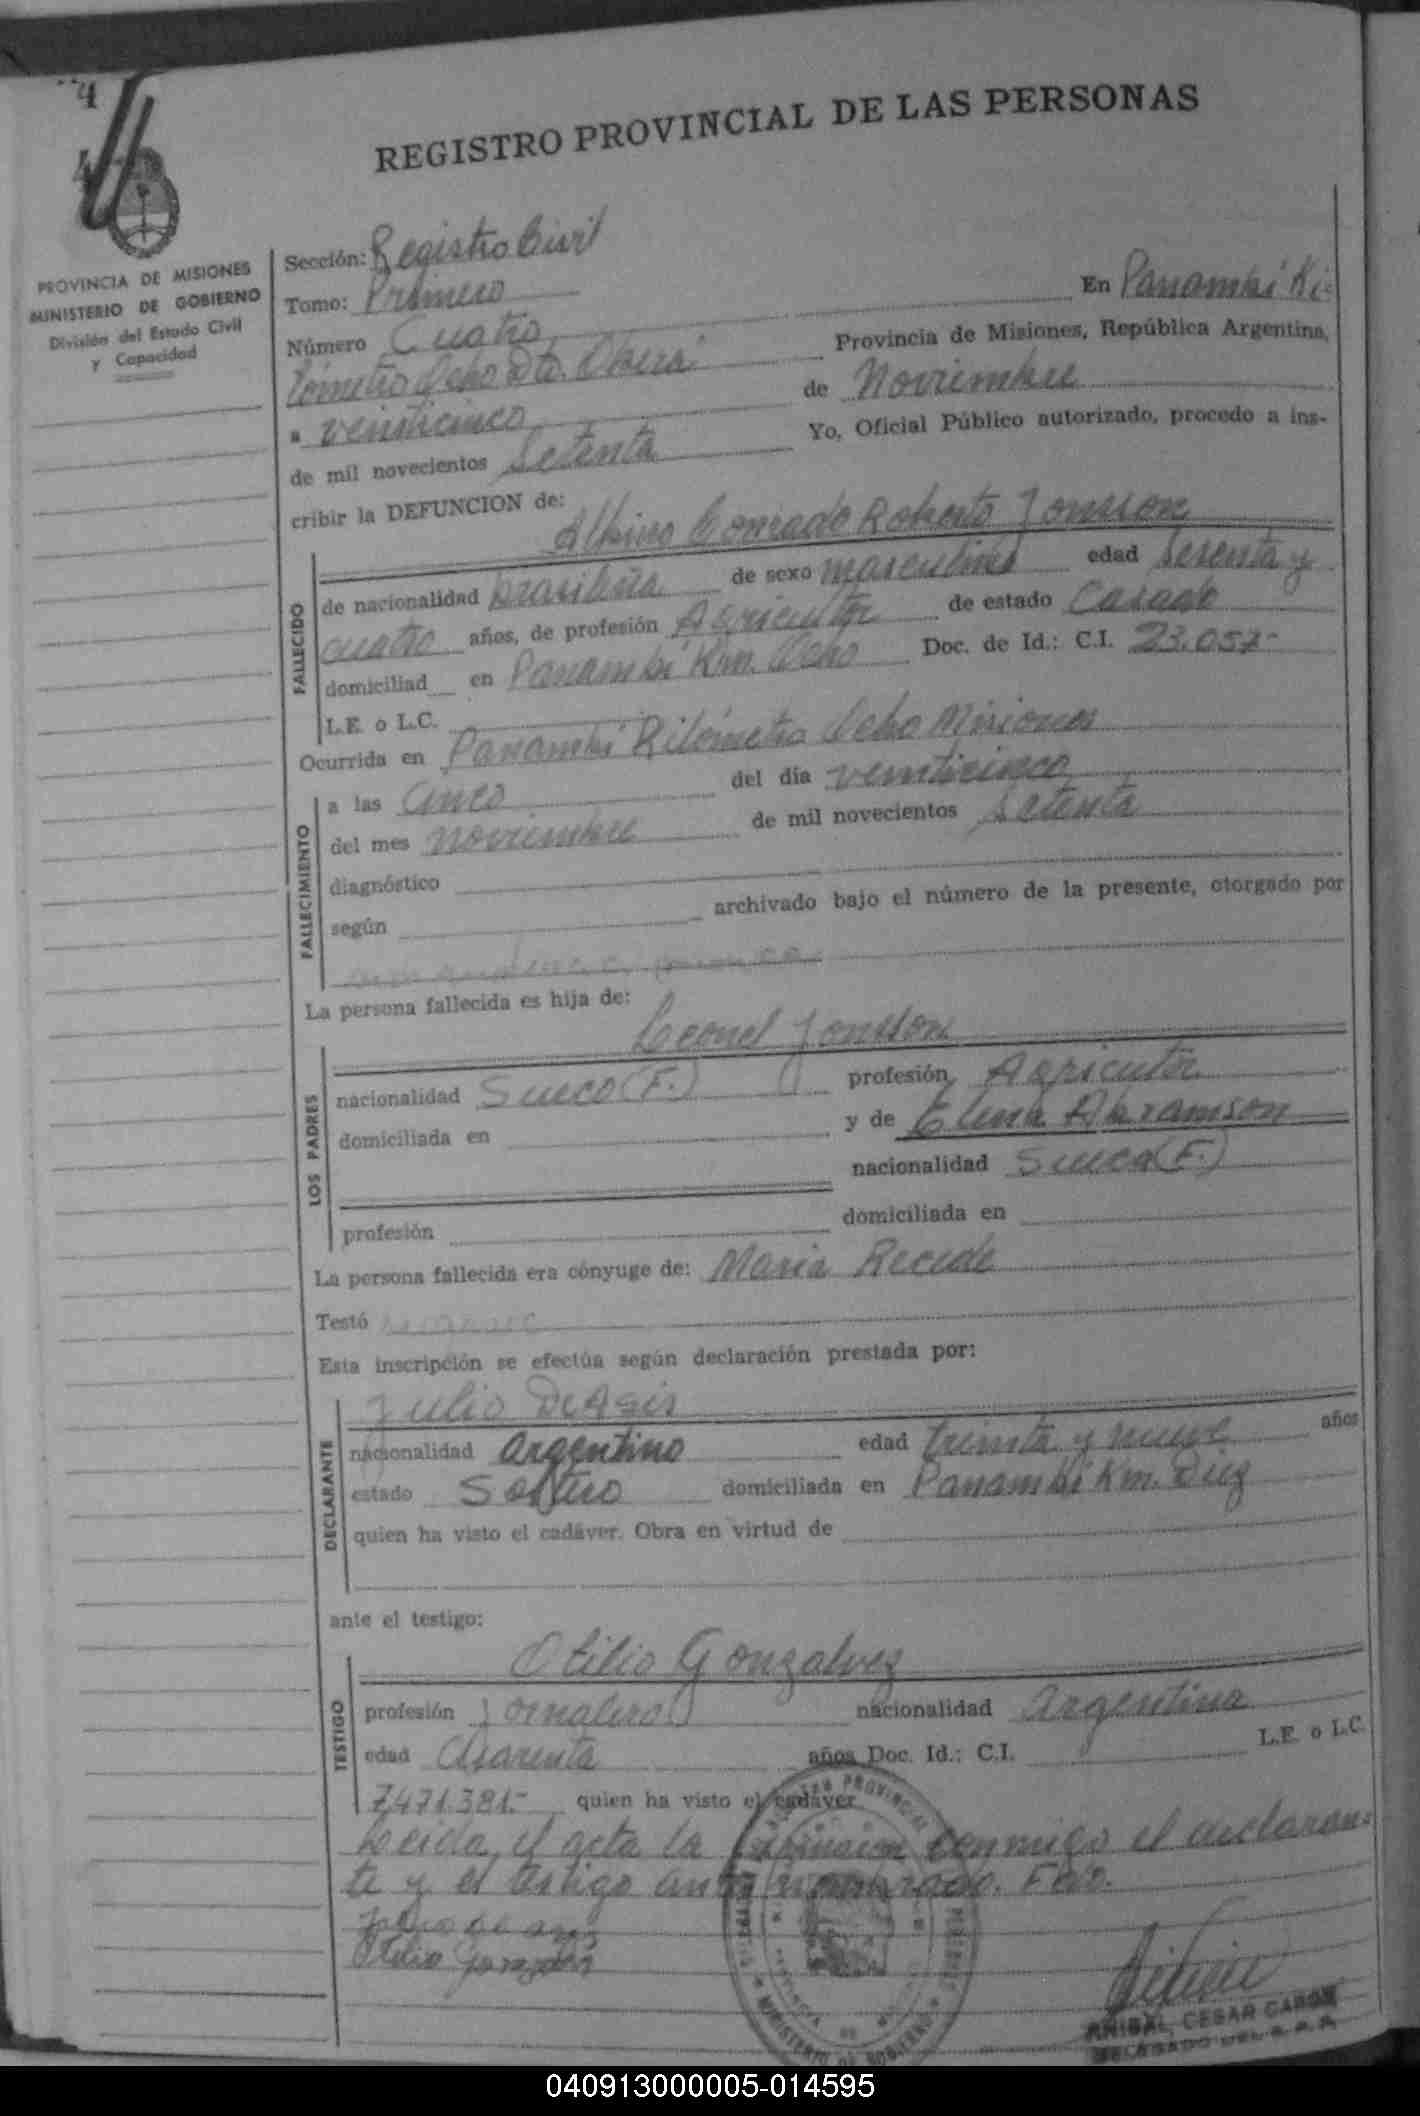 4
REGISTRO PROVINCIAL DE LAS PERSONAS
PROVINCIA DE MISIONES
MINISTERIO DE GOBIERNO
División del Estado Civil
y Capacidad
Sección: Registro Civil
Tomo: Primero
En Panambí Ki-
Número Cuatro
lómetro Ocho Dto. Oberá Provincia de Misiones, República Argentina,
a veinticinco de Noviembre
de mil novecientos Setenta Yo, Oficial Público autorizado, procedo a ins-
cribir la DEFUNCION de:
Albino Conrado Roberto Jonsson
FALLECIDO
de nacionalidad brasileña de sexo masculino edad Sesenta y
cuatro años, de profesión Agricultor de estado Casado
domiciliad en Panambí Km. Ocho Doc. de Id.: C.I. 23.057-
L.E. o L.C.
Ocurrida en Panambí Kilómetro Ocho Misiones
FALLECIMIENTO
a las Cinco del día veinticinco
del mes noviembre de mil novecientos Setenta
diagnóstico
según archivado bajo el número de la presente, otorgado por
La persona fallecida es hija de:
Leonel Jonsson
LOS PADRES
nacionalidad Sueco (F.) profesión Agricutor
domiciliada en y de Elina Abramson
nacionalidad Sueca (F.)
profesión domiciliada en
La persona fallecida era cónyuge de: Maria Recede
Testó
Esta inscripción se efectúa según declaración prestada por:
Julio DeAgis
DECLARANTE
nacionalidad Argentino edad treinta y nueve años
estado Soltero domiciliada en Panambí Km. Diez
quien ha visto el cadáver. Obra en virtud de
ante el testigo:
Otilio Gonzalvez
TESTIGO
profesión Jornalero nacionalidad Argentina
edad Cuarenta años Doc. Id.: C.I. L.E. o L.C.
7.471.381.- quien ha visto el cadáver
Leida el acta la conmigo el declaran-
te y el testigo ante nombrado.
Otilio
ANIBAL CESAR
DELEGADO DEL R. P. P.
MINISTERIO DE GOBIERNO
040913000005-014595